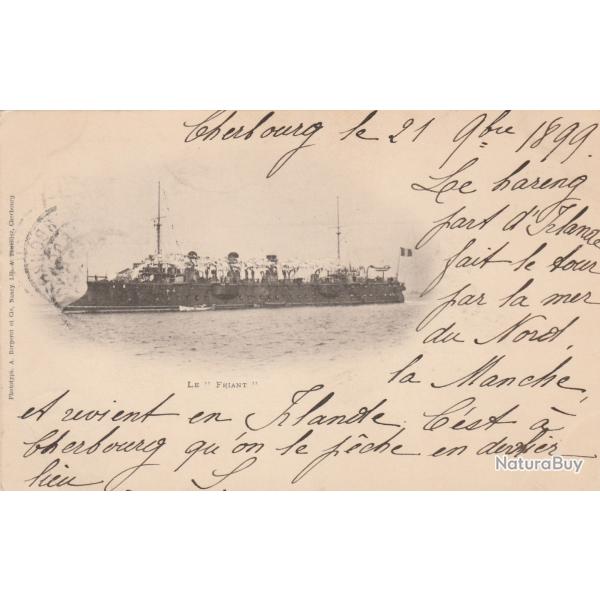 Cherbourg le 21 9bre 1899.
Le hareng
part d'Irlande
fait le tour
par la mer
du Nord,
la Manche,
et revient en Irlande. C'est à
Cherbourg qu'on le pêche en dernier
lieu
Le " Friant "
Phototypie A. Bergeret et Cie, Nancy Cherbourg
NaturaBuy